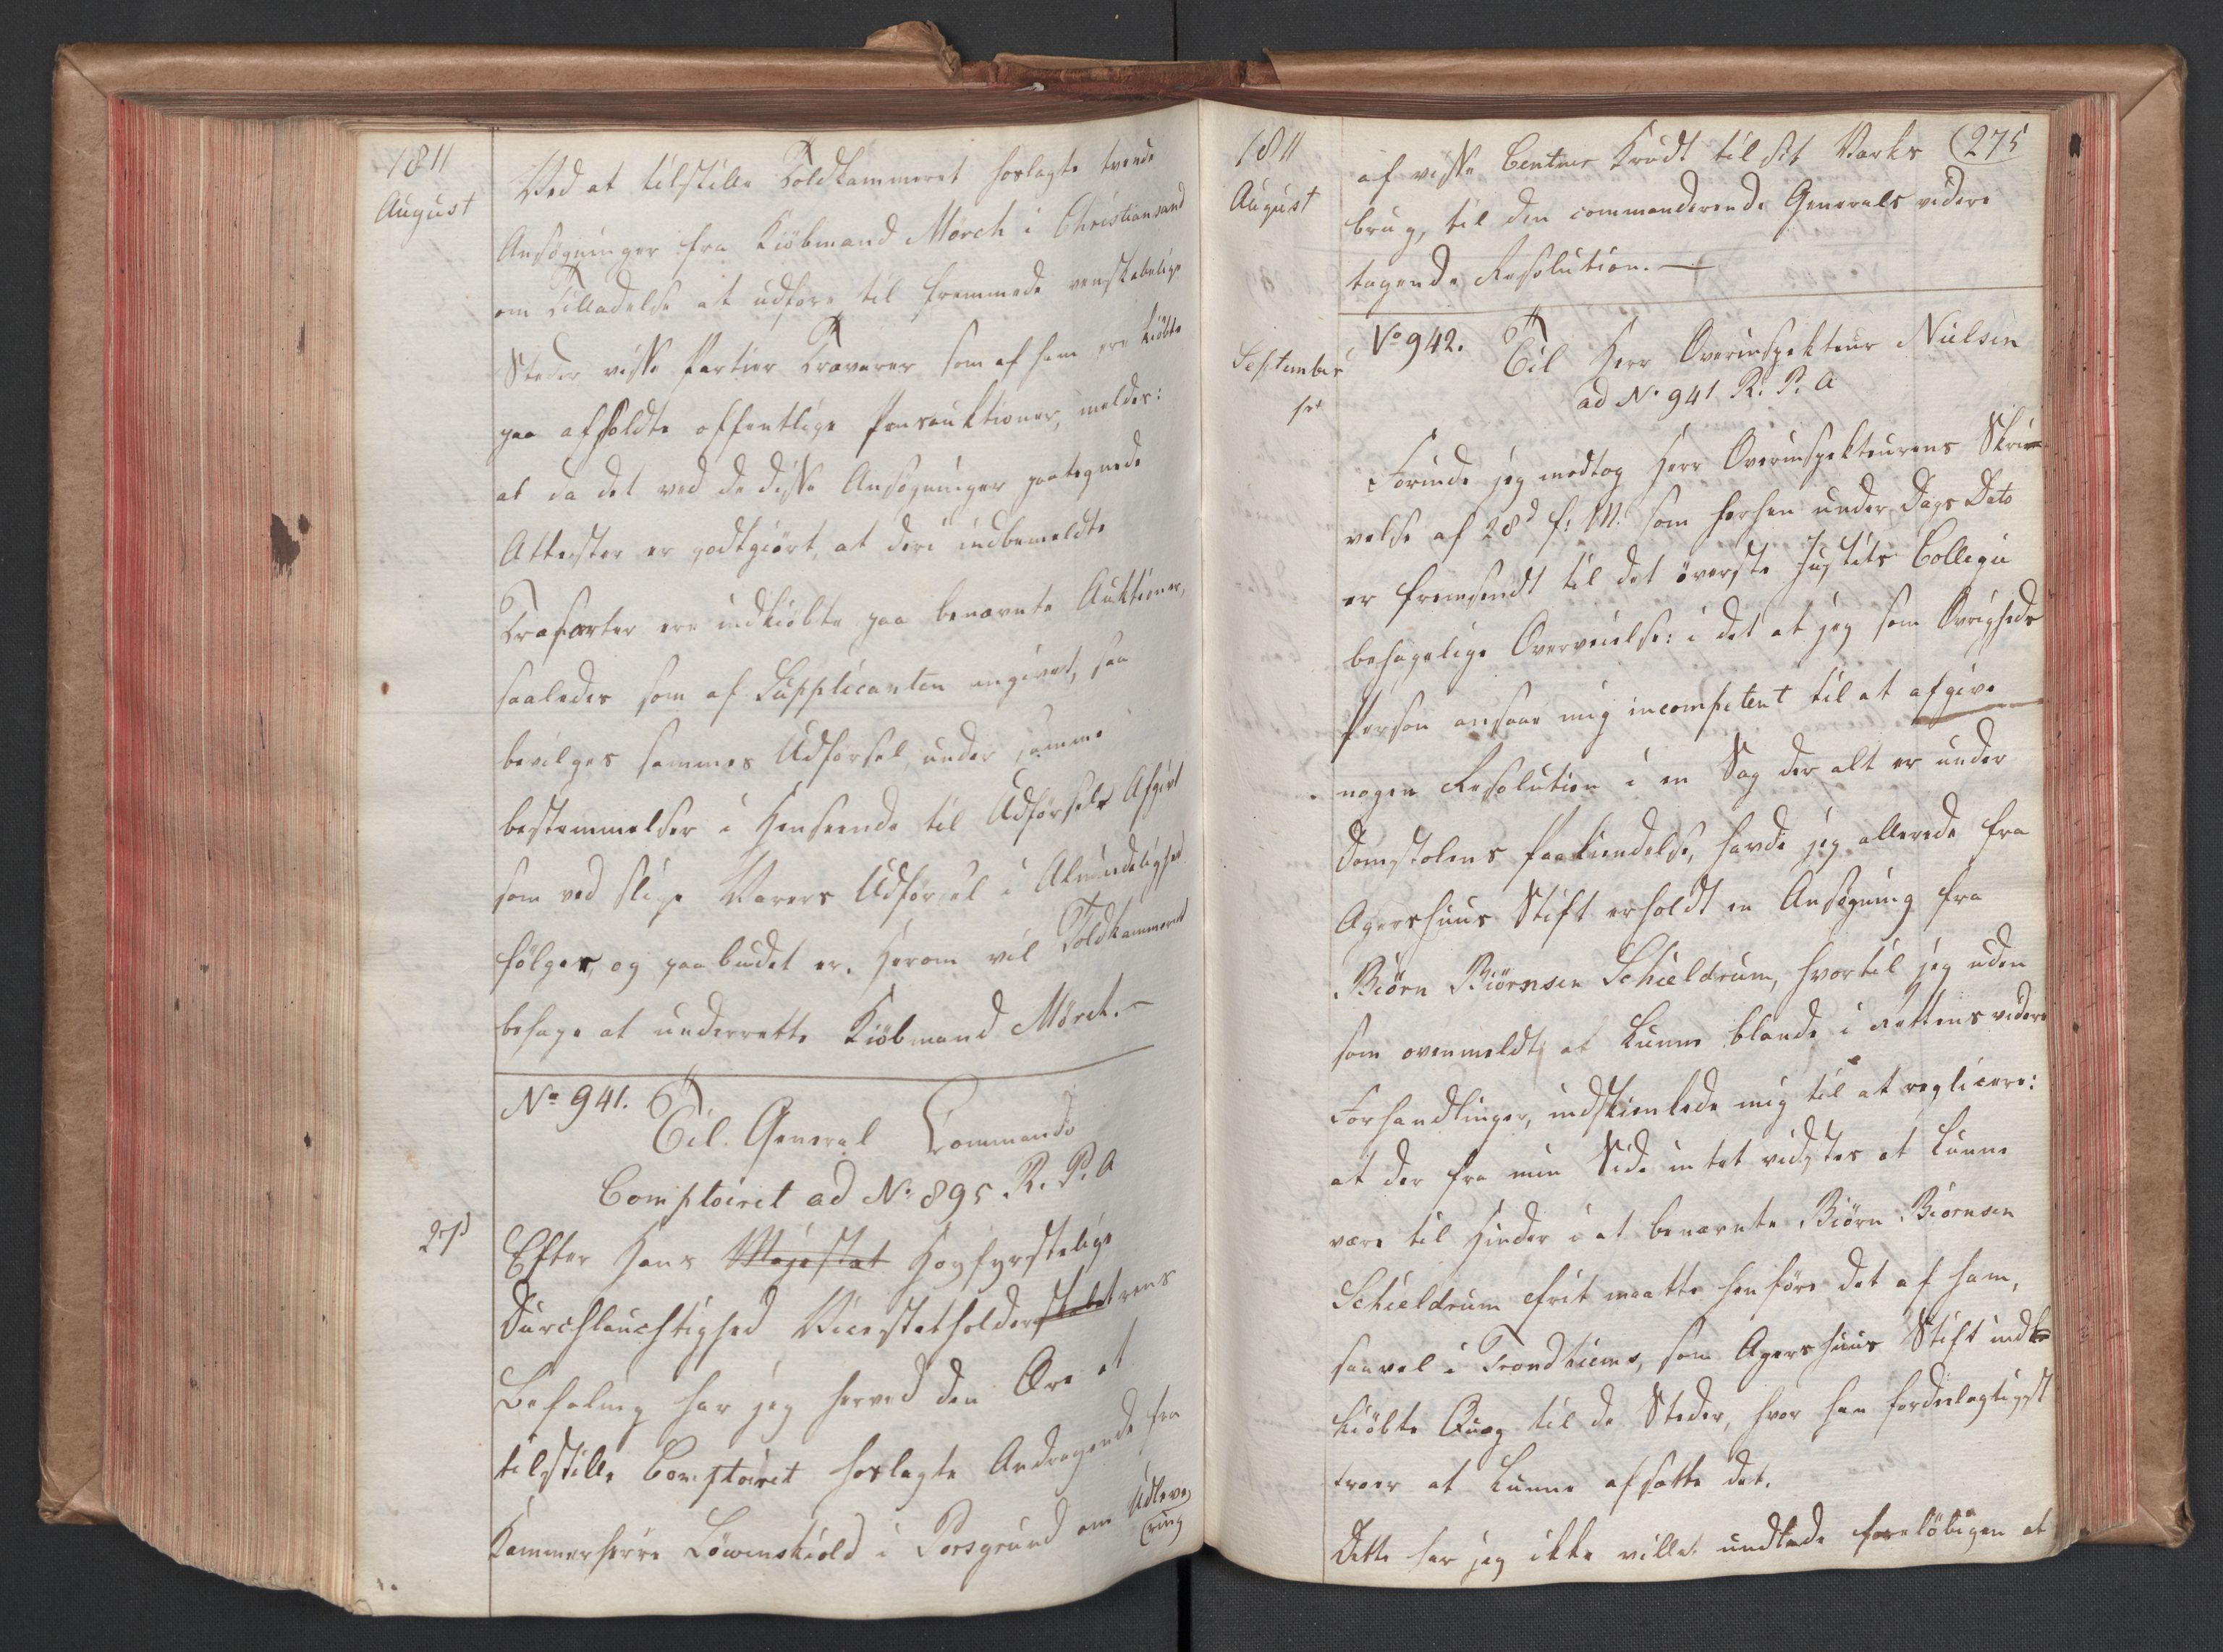 1811
August
Ved at tilstille Toldkammeret hoslagte tvende
Ansøgninger fra Kiöbmand Mörch i Christiansand
om Tilladelse at udføre til fremmede venskabelige
Steder visse Partier Trævarer som af ham ere kiöbte
paa afholdte offentlige Auktioner, meldes:
at da det ved de disse Ansøgninger paategnede
Attester er godtgiört, at deri indbemeldte
Trasorter ere indkiöbte paa benævnte Auktioner,
saaledes som af Supplicanten angivet, saa
bevilges sammes Udförsel under samme
bestemmelser i Henseende til Udförsels Afgivt
som ved slige Varers Udförsel i Almindelighed
fölger, og paabudet er. Herom vil Toldkammeret
behage at underrette Kiöbmand Mörch.-
No 941. Til General Commando
Comptoiret ad No 895 R. P. A
27d
Efter Hans Majestæt Hoyfyrstelige
Durchlauchtighed Vicestatholderskabet rens
Befaling har jeg herved den Ære at
tilstille Comptoiret hoslagte Andragende fra
Kammerherre Löwenskiold i Porsgrund om Udleve
ring
1811
August
275
af visse Centner Krudt til sit Værks
brug, til den commanderende Generals videre
tagende Resolution.-
September
1ste
No 942. Til Herr Overinspekteur Nielsen
ad No 941 R. P. A
Forinden jeg modtog Herr Overinspekteurens Skri-
velse af 28d f: M: som herhen under Dags Dato
er fremsendt til det överste Justits Collegii
behagelige Overveielse: i det at jeg som Övrigheds
Person ansaae mig incompetent til at afgive
nogen Resolution i en Sag der alt er under
Domstolens Paakiendelse, havde jeg allerede fra
Agershuus Stift erholdt en Ansøgning fra
Biörn Biörnsen Schieldrum, hvortil jeg uden
som ovenmeldt at kunne blande i Rettens videre
Forhandlinger, indskienkede mig til at replicere:
at der fra min Side intet vidstes at kunne
være til Hinder i at benævnte Biörn Biörnsen
Schieldrum frit maatte henföre det af ham,
saavel i Trondhiems, som Agershuus Stift ind-
kiöbte Quæg til de Steder, hvor han fordeelagtigst
troer at kunne afsætte det.
Dette har jeg ikke villet undlade forelöbigen at